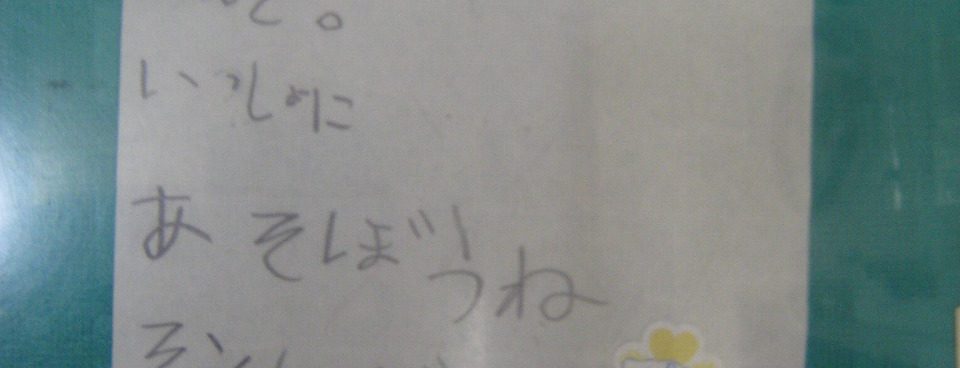 と。
いっしょに
あそぼうね